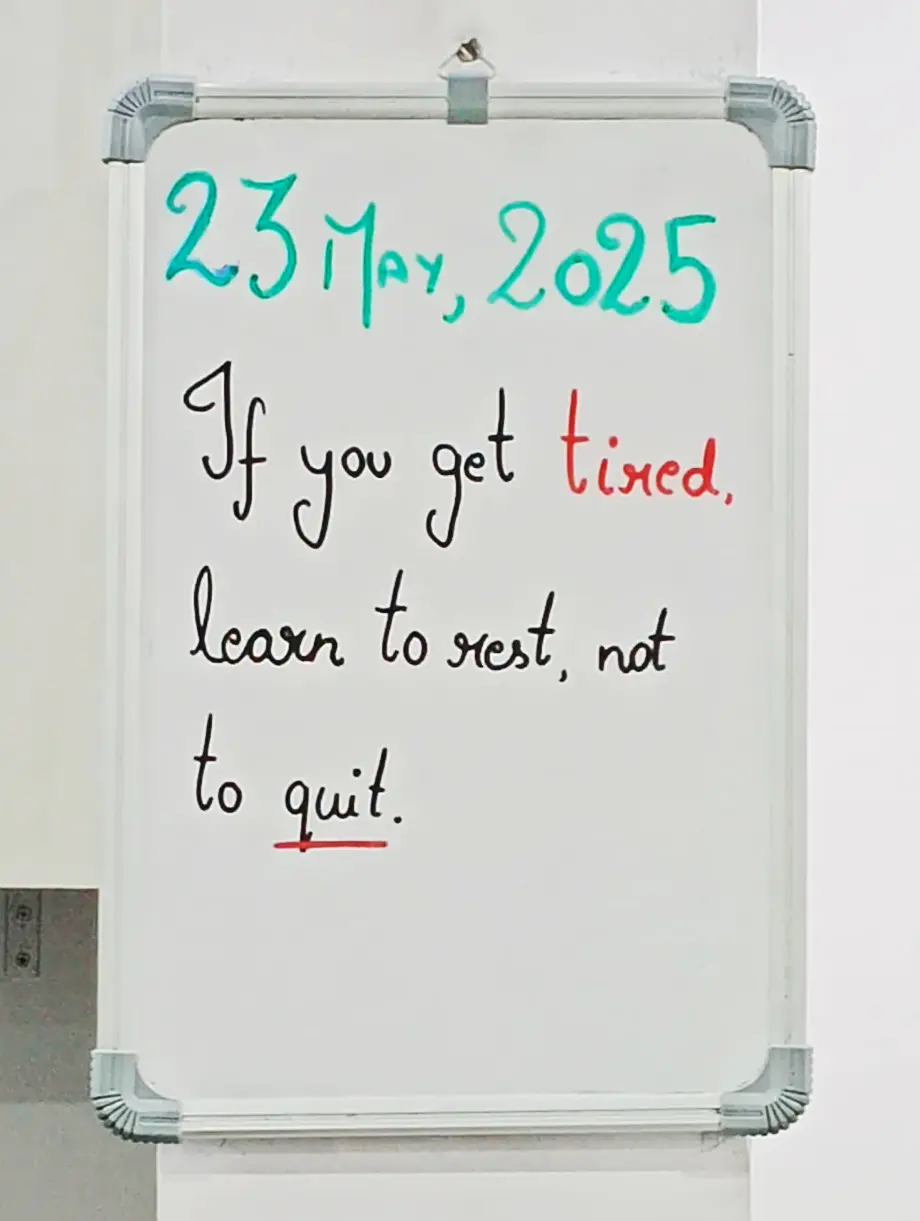 23 May, 2025
If you get tired,
learn to rest, not
to quit.